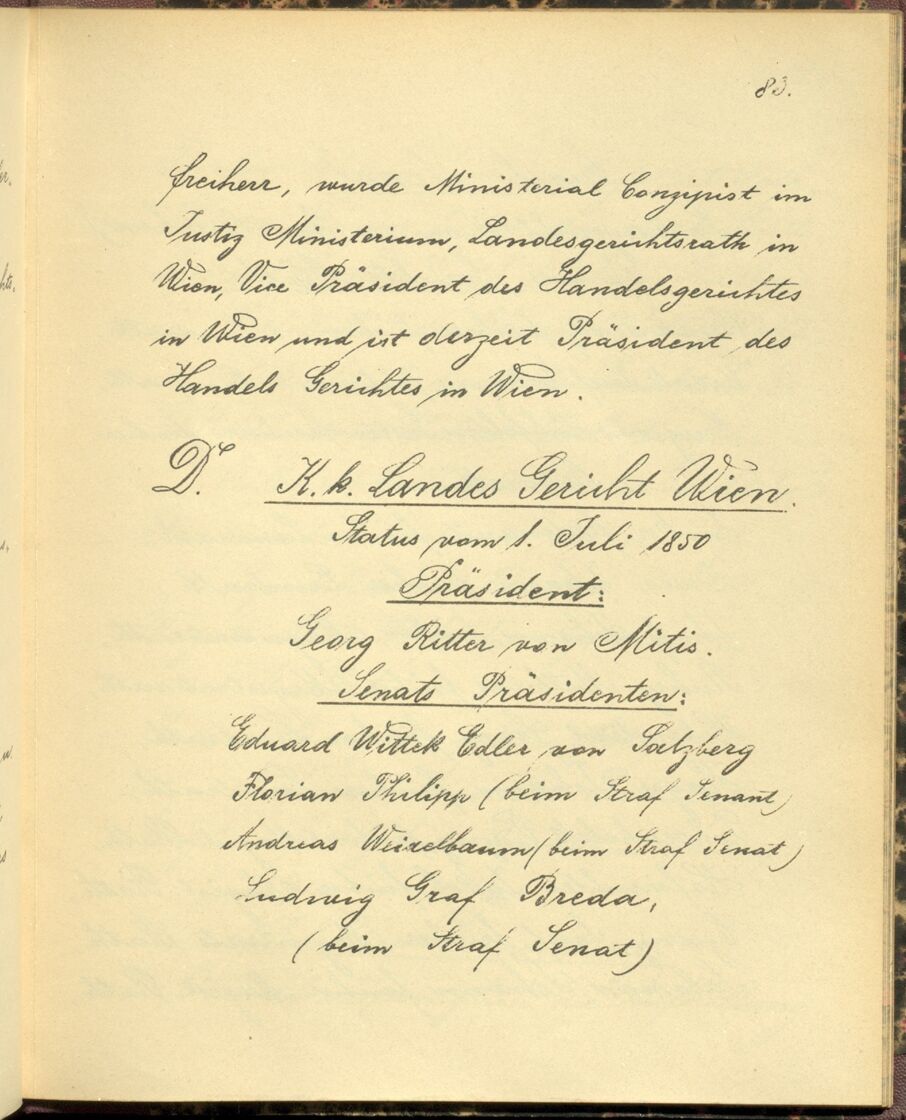 83.
freiherr, wurde Ministerial Conzipist im
Justiz Ministerium, Landesgerichtsrath in
Wien, Vice Präsident des Handelsgerichtes
in Wien und ist derzeit Präsident des
Handels Gerichtes in Wien.
D. K. k. Landes Gericht Wien.
Status vom 1. Juli 1850
Präsident:
Georg Ritter von Mitis.
Senats Präsidenten:
Eduard Wittek Edler von Salzberg
Florian Philipp (beim Straf Senant)
Andreas Weixelbaum (beim Straf Senat)
Ludwig Graf Breda,
(beim Straf Senat)